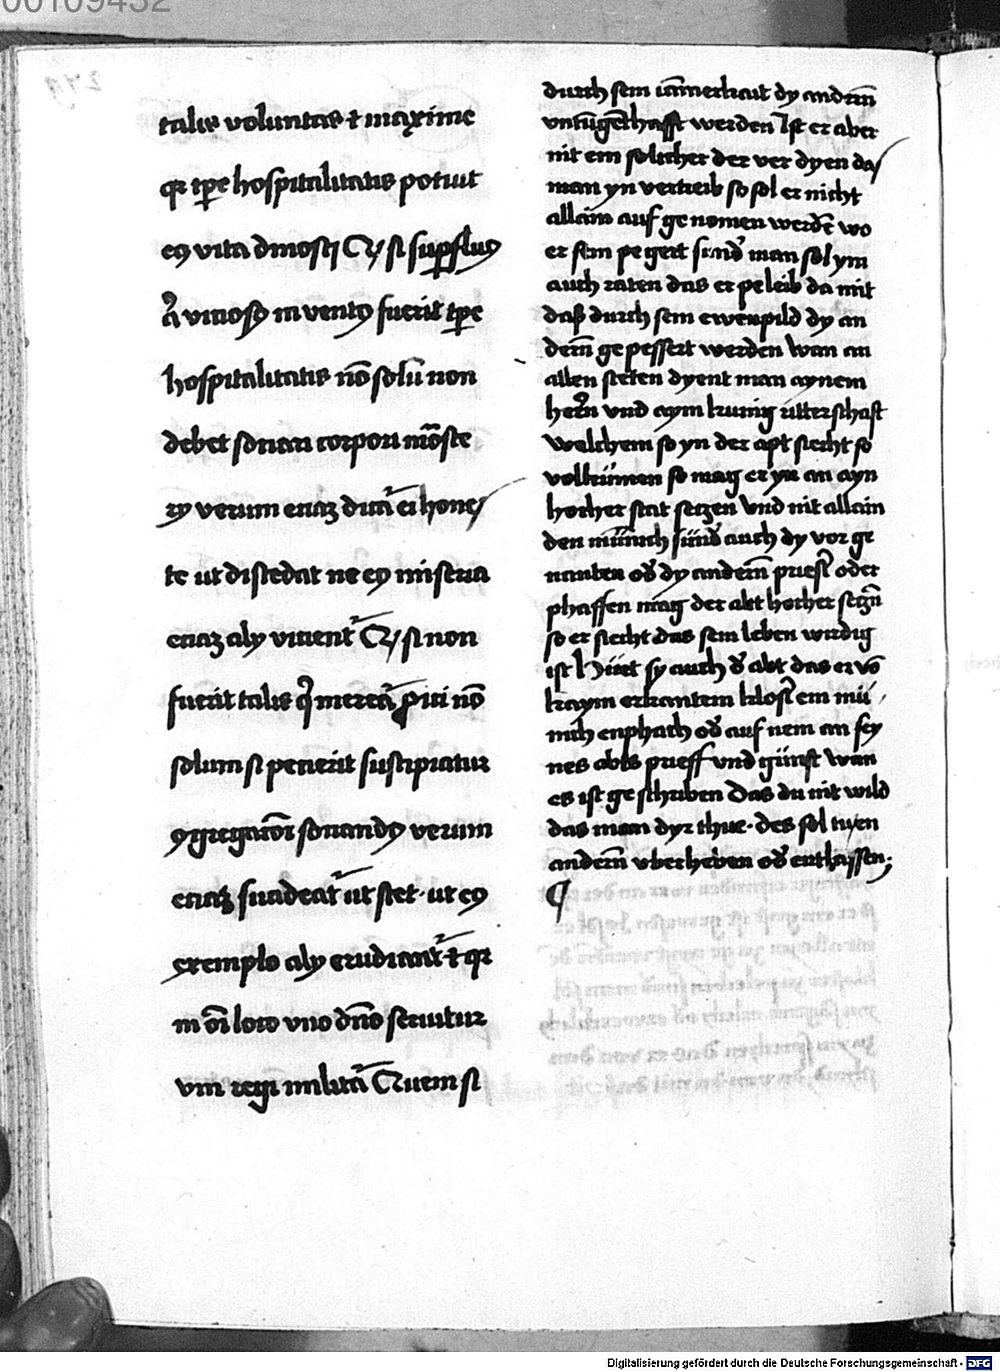 00109432
talis voluntas et maxime
qr tꝑe hospitalitatis potiut
eꝯ vita dinosci Qꝫ si supfluꝯ
a͛ viciosꝯ in ventꝯ fuerit tꝑe
hospitalitatis nō solū non
debet sociari corpori mōste
rÿ verum eciaꝫ dicat͛ ei hones
te ut discedat ne eꝯ miseria
eciaꝫ alÿ vicient͛ Qꝫ si non
fuerit talis q͛ mereat͛ ꝓici nō
solum si pecierit suscipiatur
ꝯgregacōi sociandꝯ verum
eciaꝫ suadeat͛ ut stet · ut eꝯ
exemplo alÿ erudiant͛ et qr
in oī loco vno dn̄o seruitur
vni regi militat͛ Quem si
durch sein iāmerkait dy andern̄
vntugēthafft werden Ist er aber
nit ein solicher der ver dyen das
man yn vertreib so sol er nicht
allain auf ge nomen werdē wo
er sein pe gert sund͛ man sol ym
auch raten das er pe leib da mit
daß durch sein ewenpild dy an
dern̄ ge pessert werden wan an
allen steten dyent man aynem
herrn̄ vnd aym kunig ritterschaft
welchem so yn der apt siecht so
volkümen so mag er yn an ayn
hocher stat seczen Vnd nit allain
den münich sünd͛ auch dy vor ge
nanten od͛ dy andern̄ priest͛ oder
phaffen mag der abt hocher seczn̄
so er siecht das sein leben wirdig
ist Hüet sy auch d͛ abt das er vō
kaym erkantem klost͛ em mü
nich enphach od͛ auf nem an sey
nes abts prieff vnd günst wan
es ist ge schriben Das du nit wild
das man dyr thue · des sol tu en
andern̄ vberheben od͛ enthassen ·
¶
Digitalisierung gefördert durch die Deutsche Forschungsgemeinschaft - DFG